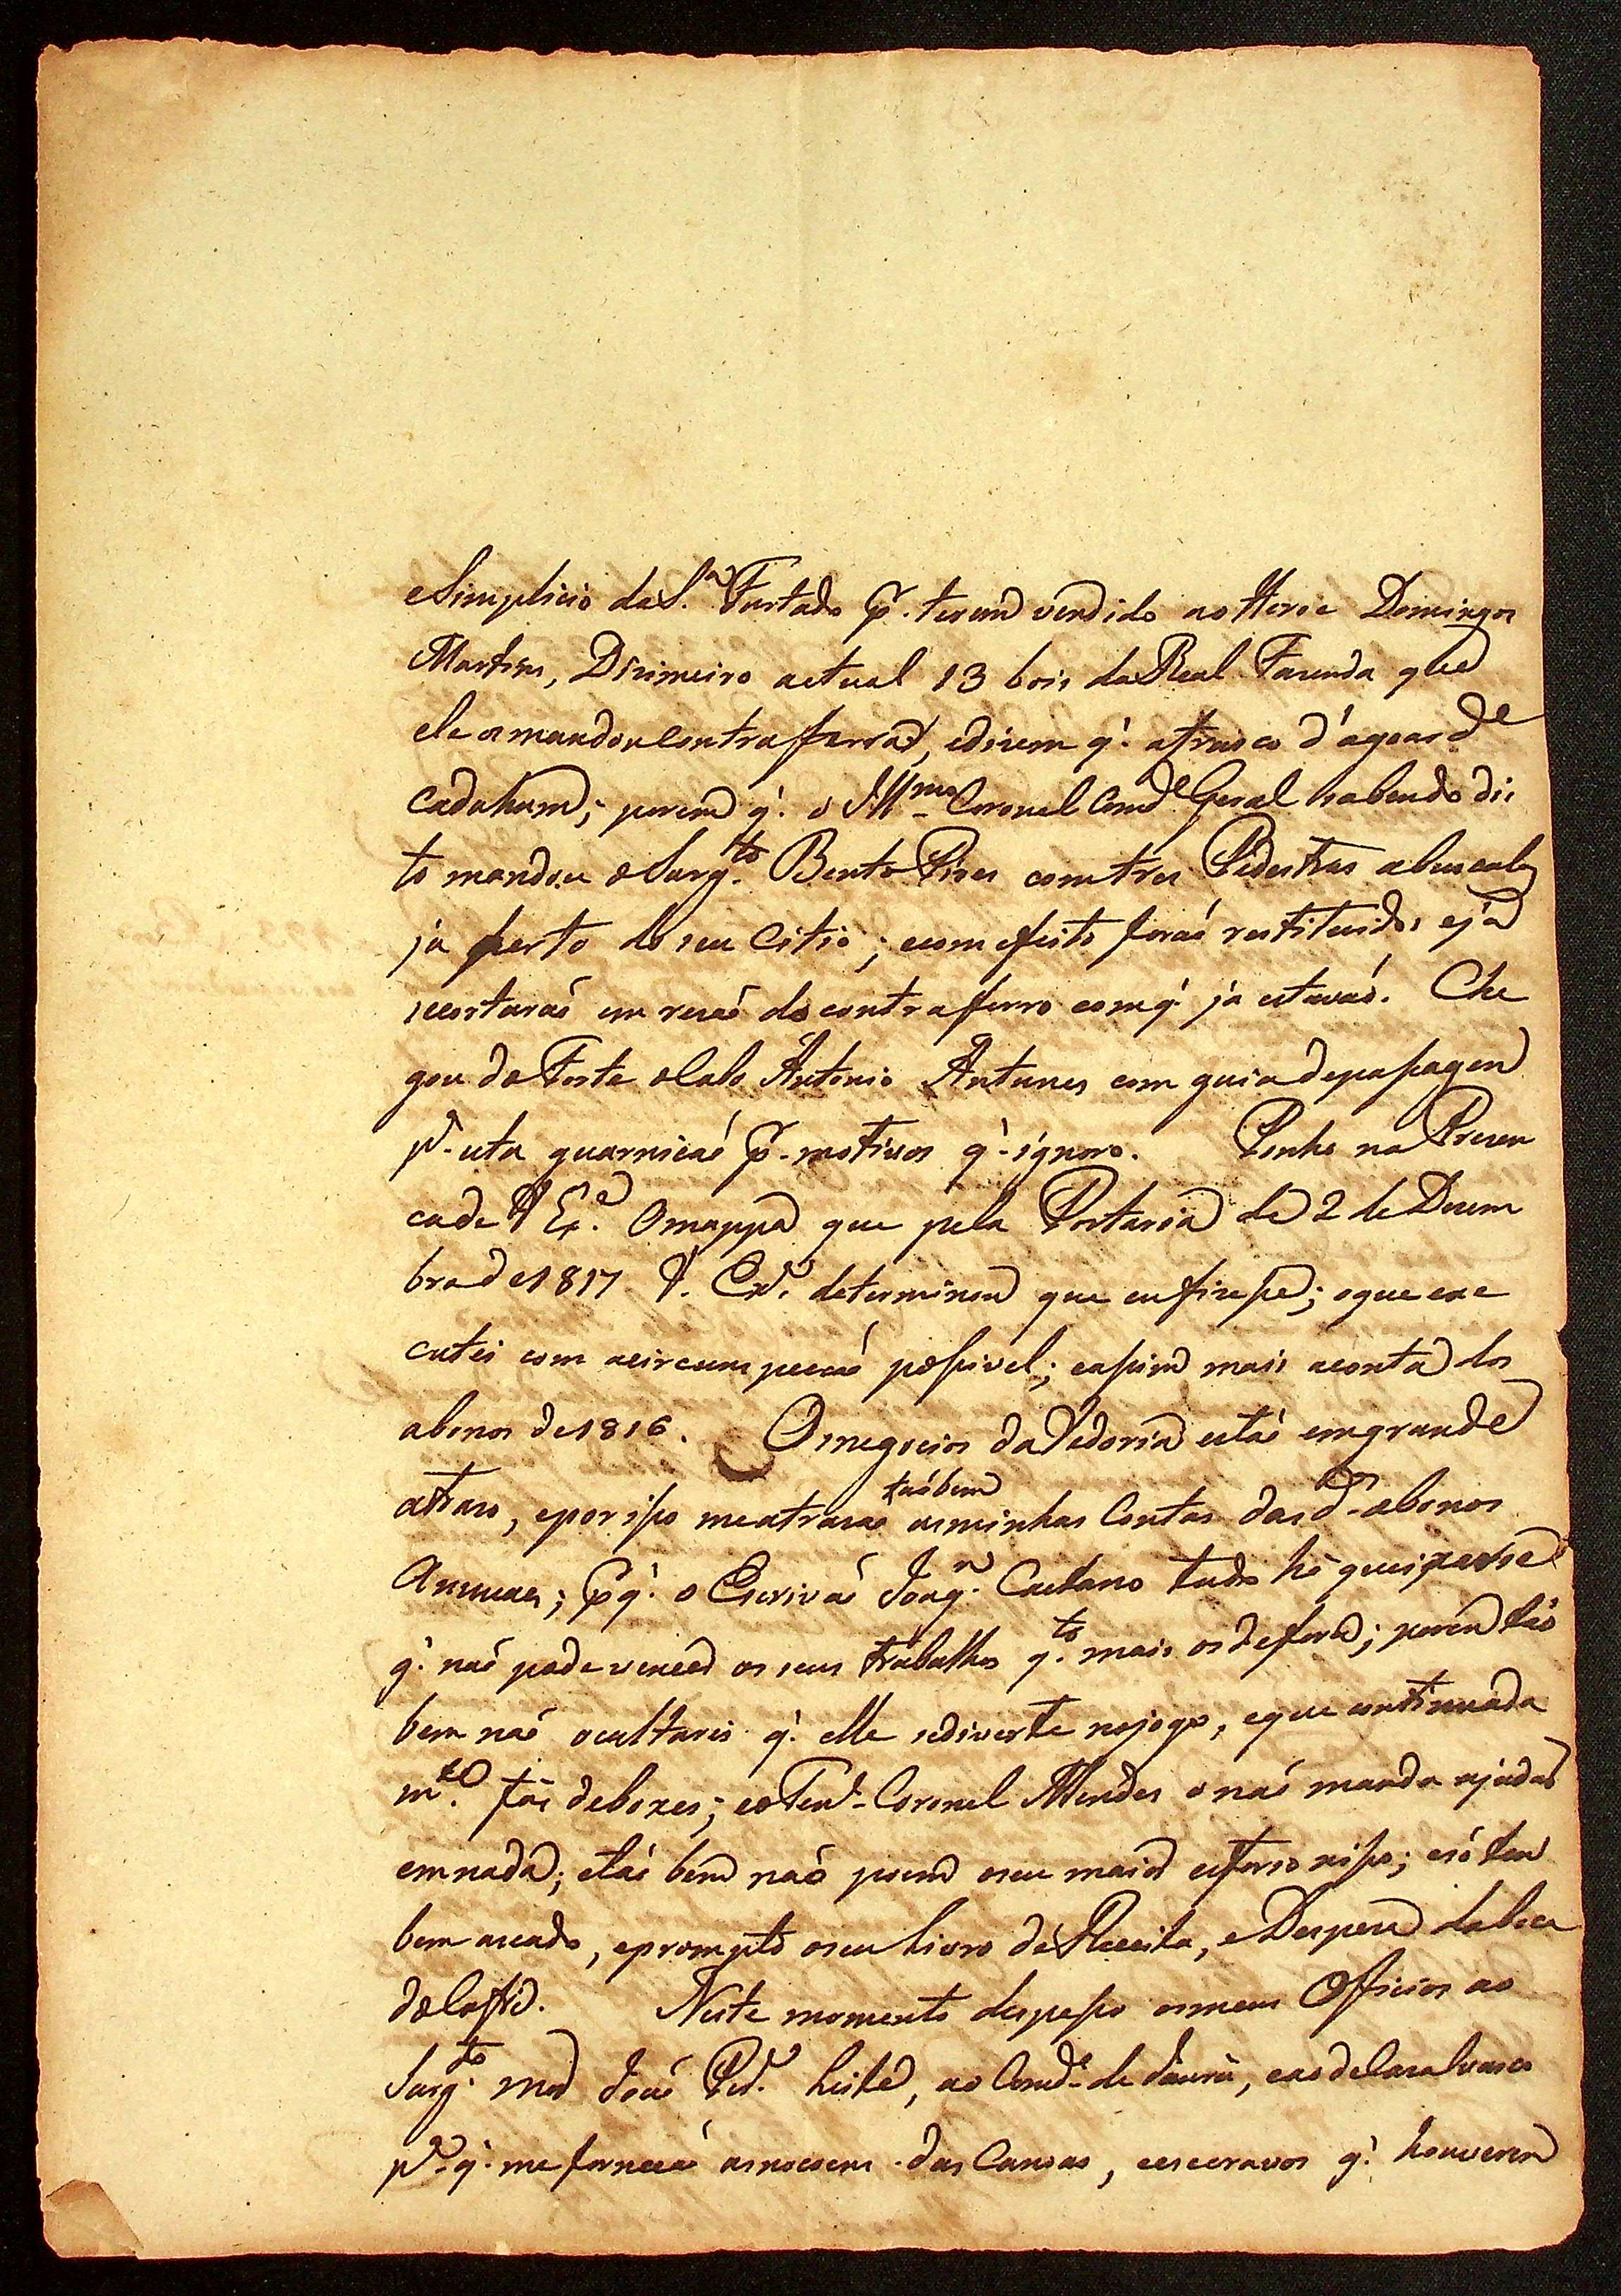 e Simplicio da S.ª Furtado p.r terem vendido ao Heroe Domingos
Martins, Dizimeiro actual 13 bois da Real Fazenda que
ele os mandou contraferrar, e dizem q̃. a frasco d'agoard.e
cada hum; porem q̃. o Ill.mo Coronel Com.de Geral sabendo dis
to mandou o Sarg.to Bento Pires com tres Pedestres a buscalos
ja perto do seu Citio; e com efeito foraõ restituidos e já
se cortaraõ em rezaõ do contraferro com q̃ ja estavaõ. Che
gou do Forte o Cabo Antonio Antunes com guia de passagem
p.ª esta guarniçaõ p.r motivos q̃ ignoro. Ponho na Presen
ca de V Ex.ª O mappa que pela Portaria de 2 de Dezem
bro de 1817 V. Ex.ª determinou que eu fizesse; o que exe
cutei com a circumspecaõ possivel; e assim mais a conta dos
abonos de 1816. Os negocios da Vedoria estaõ em grande
atrazo, e por isso me atrazaõ taõbem as minhas Contas dos d.os abonos
Annuaes; p.r q̃. o Escrivaõ Joaq.m Caetano tudo hé queixarse
q̃. naõ pode vencer os seus trabalhos q.to mais os de fora; porem taõ
bem naõ ocultarei q̃. elle se diverte no jogo, e que continuada
m.te fás deboxes; e o Ten.e Coronel Mendes o naõ manda ajudar
em nada; e taõ bem naõ poem o seu maior esforso nisso; e só tem
bem aceado, e prompto o seu Livro de Receita, e Despeza da boca
do Cofre. Neste momento despesso os meus Officios ao
Sarg.to mor Joaõ Per.ª Leite, ao Com.de de Jaurú, e ao de Casalvasco
p.ª q̃. me forneçaõ as nocoens das Canoas, e escravos q̃. houverem